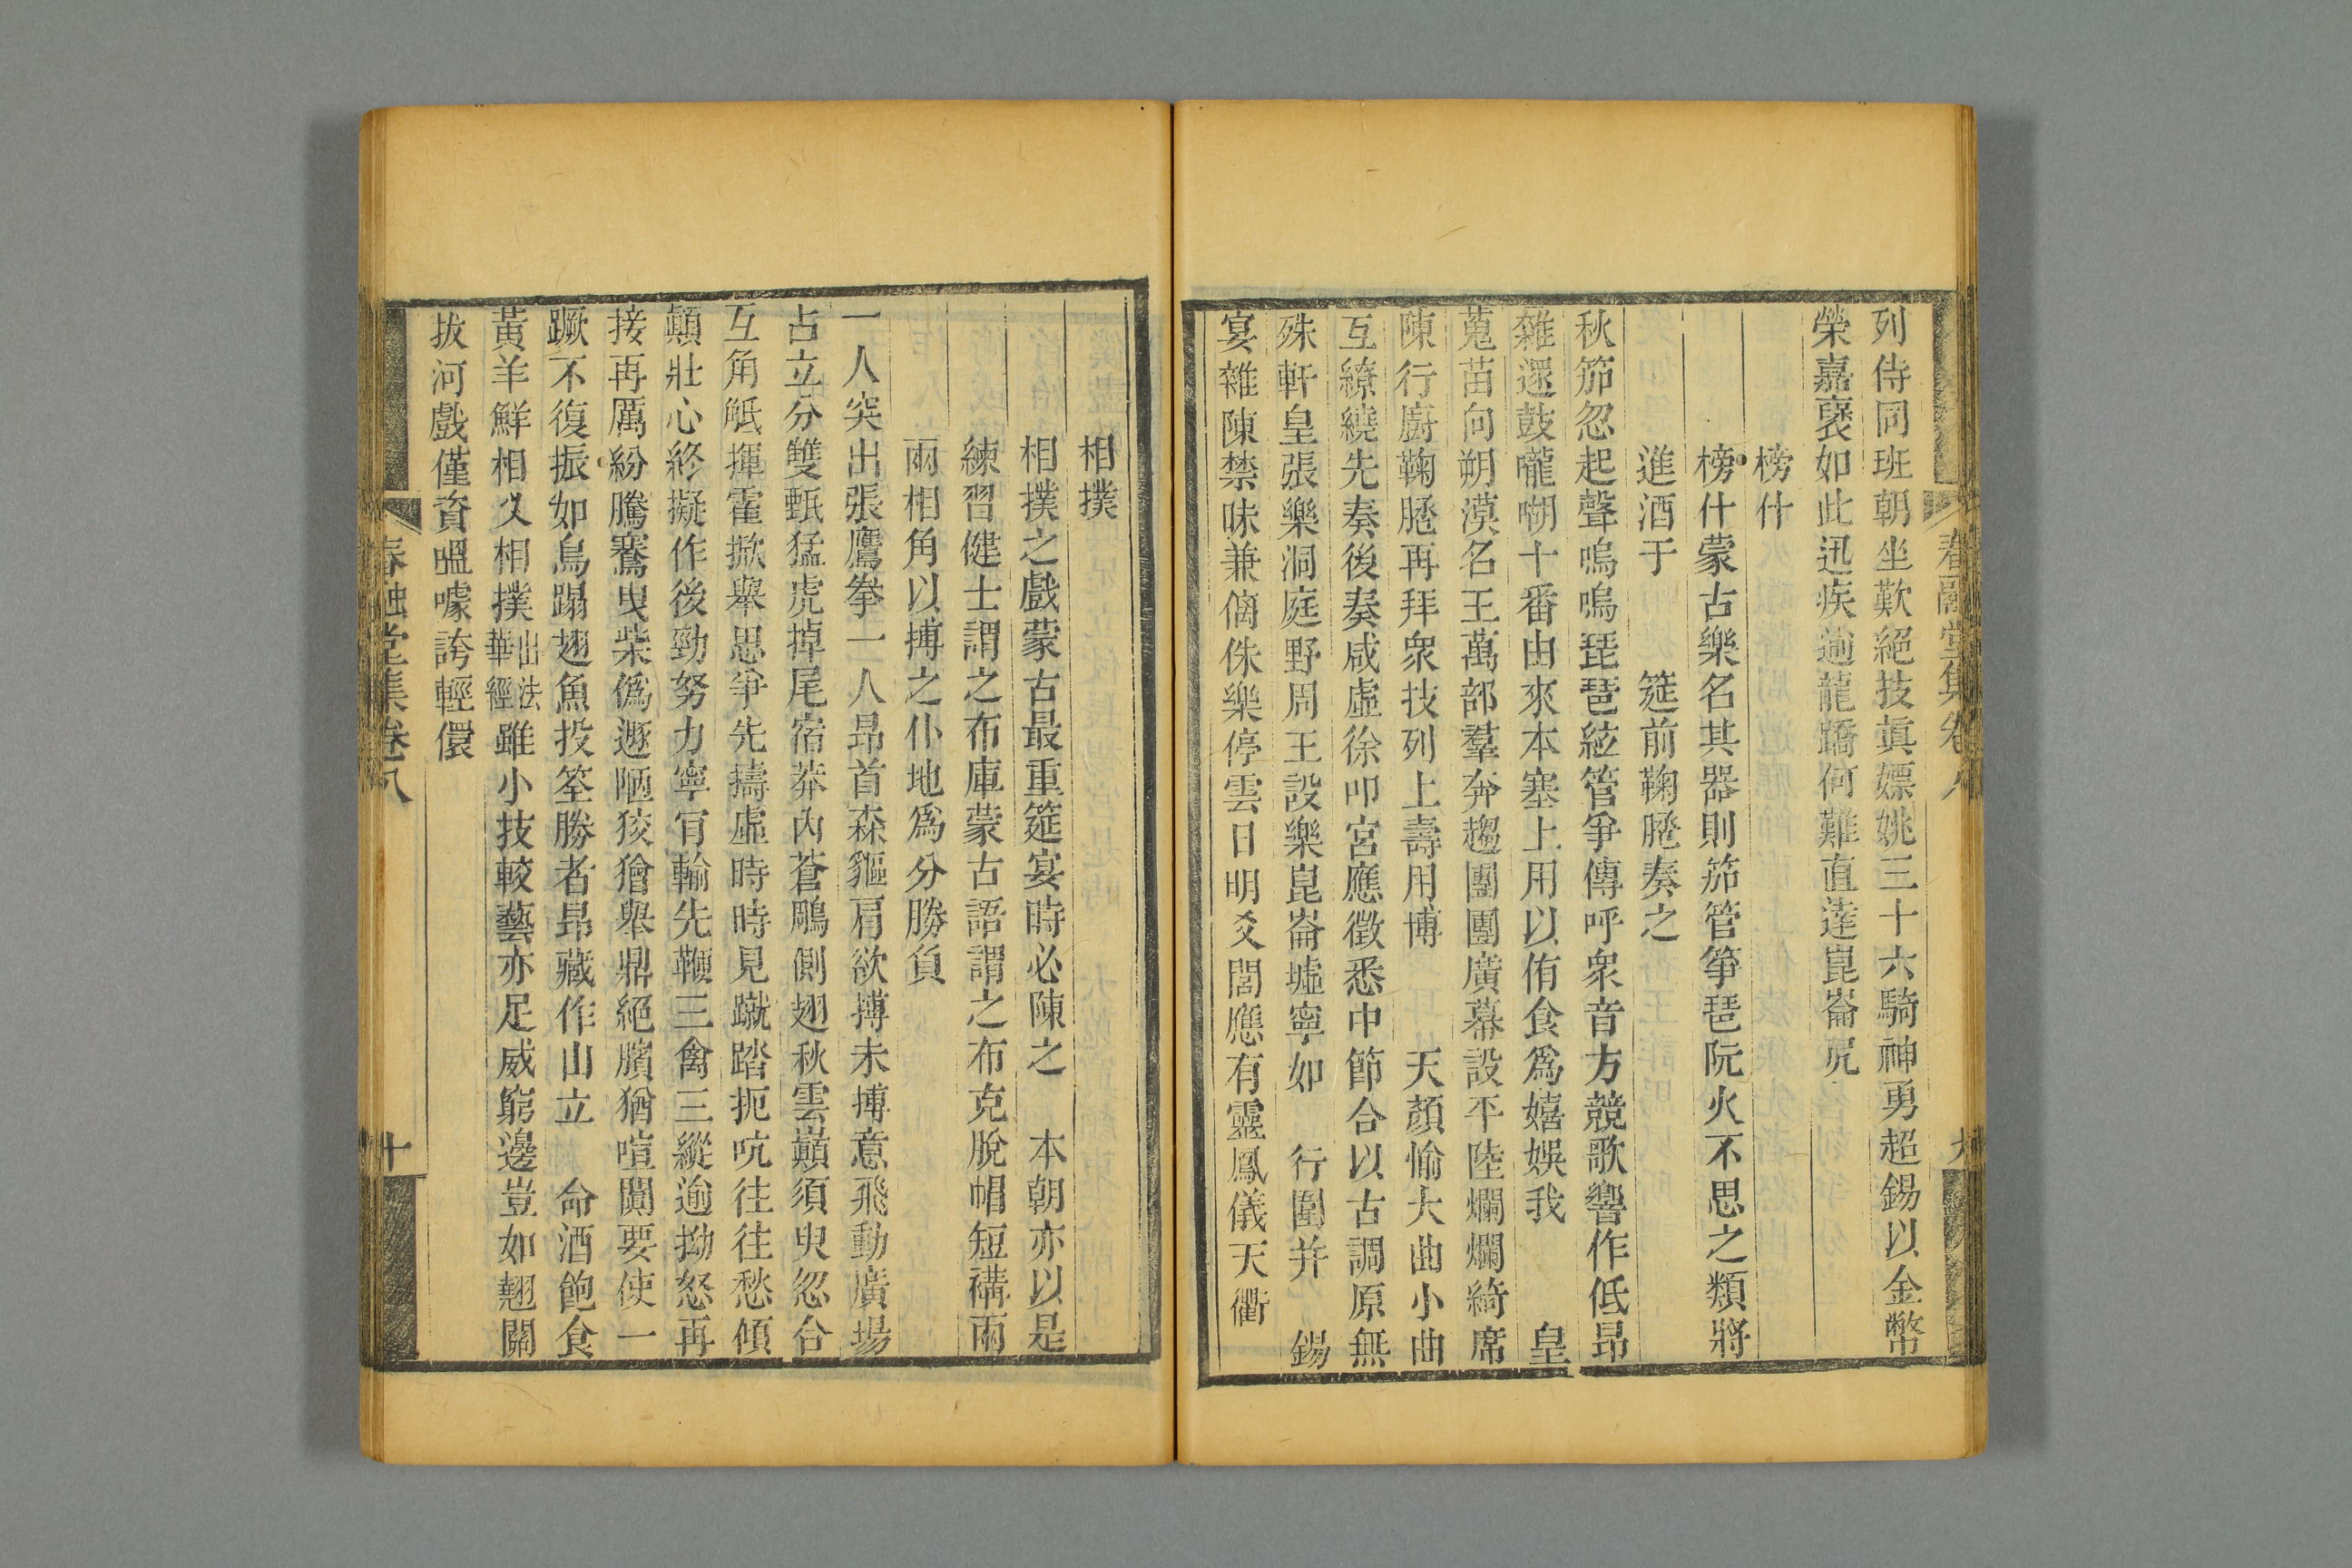 列侍同班朝坐歎絕技真嫖姚三十六騎神勇超錫以金幣
榮嘉襃如此迅疾逾龍蹻何難直達崑崙尻
榜什
榜什蒙古樂名其器則笳管箏琶阮火不思之類將
進酒于 筵前鞠䠆奏之
秋笳忽起聲嗚嗚琵琶絃管爭傳呼衆音方競歌響作低昂
雜還鼓嚨嘲十番由來本塞上用以侑食爲嬉娛我 皇
蒐苗向朔漠名王萬部羣奔趨團團廣幕設平陸爛爛綺席
陳行廚鞠䠆再拜衆技列上壽用博 天顏愉大曲小曲
互繚繞先奏後奏咸虛徐叩宮應徵悉中節合以古調原無
殊軒皇張樂洞庭野周王設樂崑崙墟寧如 行圍并 錫
宴雜陳禁味兼㑺侏樂停雲日明爻閭應有靈鳳儀天衢
春融堂集卷八
相撲
相撲之戲蒙古最重筵宴時必陳之 本朝亦以是
練習健士謂之布庫蒙古語謂之布克脫帽短褠兩
兩相角以搏之仆地爲分勝負
一人突出張鷹拳一人昂首森貙肩欲搏未搏意飛動廣場
占立分雙甄猛虎掉尾宿莽內蒼鵰側翅秋雲巔須臾忽合
互角觝揮霍掀舉思爭先擣虛時時見蹴踏扼吭往往愁傾
顛壯心終擬作後勁努力寧肯輸先鞭三禽三縱逾拗怒再
接再厲紛騰騫曳柴僞遯陋狡獪舉鼎絕臏猶喧闐要使一
蹶不復振如鳥蹋翅魚投筌勝者昂藏作山立 命酒飽食
黃羊鮮相攵相撲出法華經雖小技較藝亦足威窮邊豈如翹關
拔河戲僅資嗢噱誇輕儇
春融堂集卷八
十